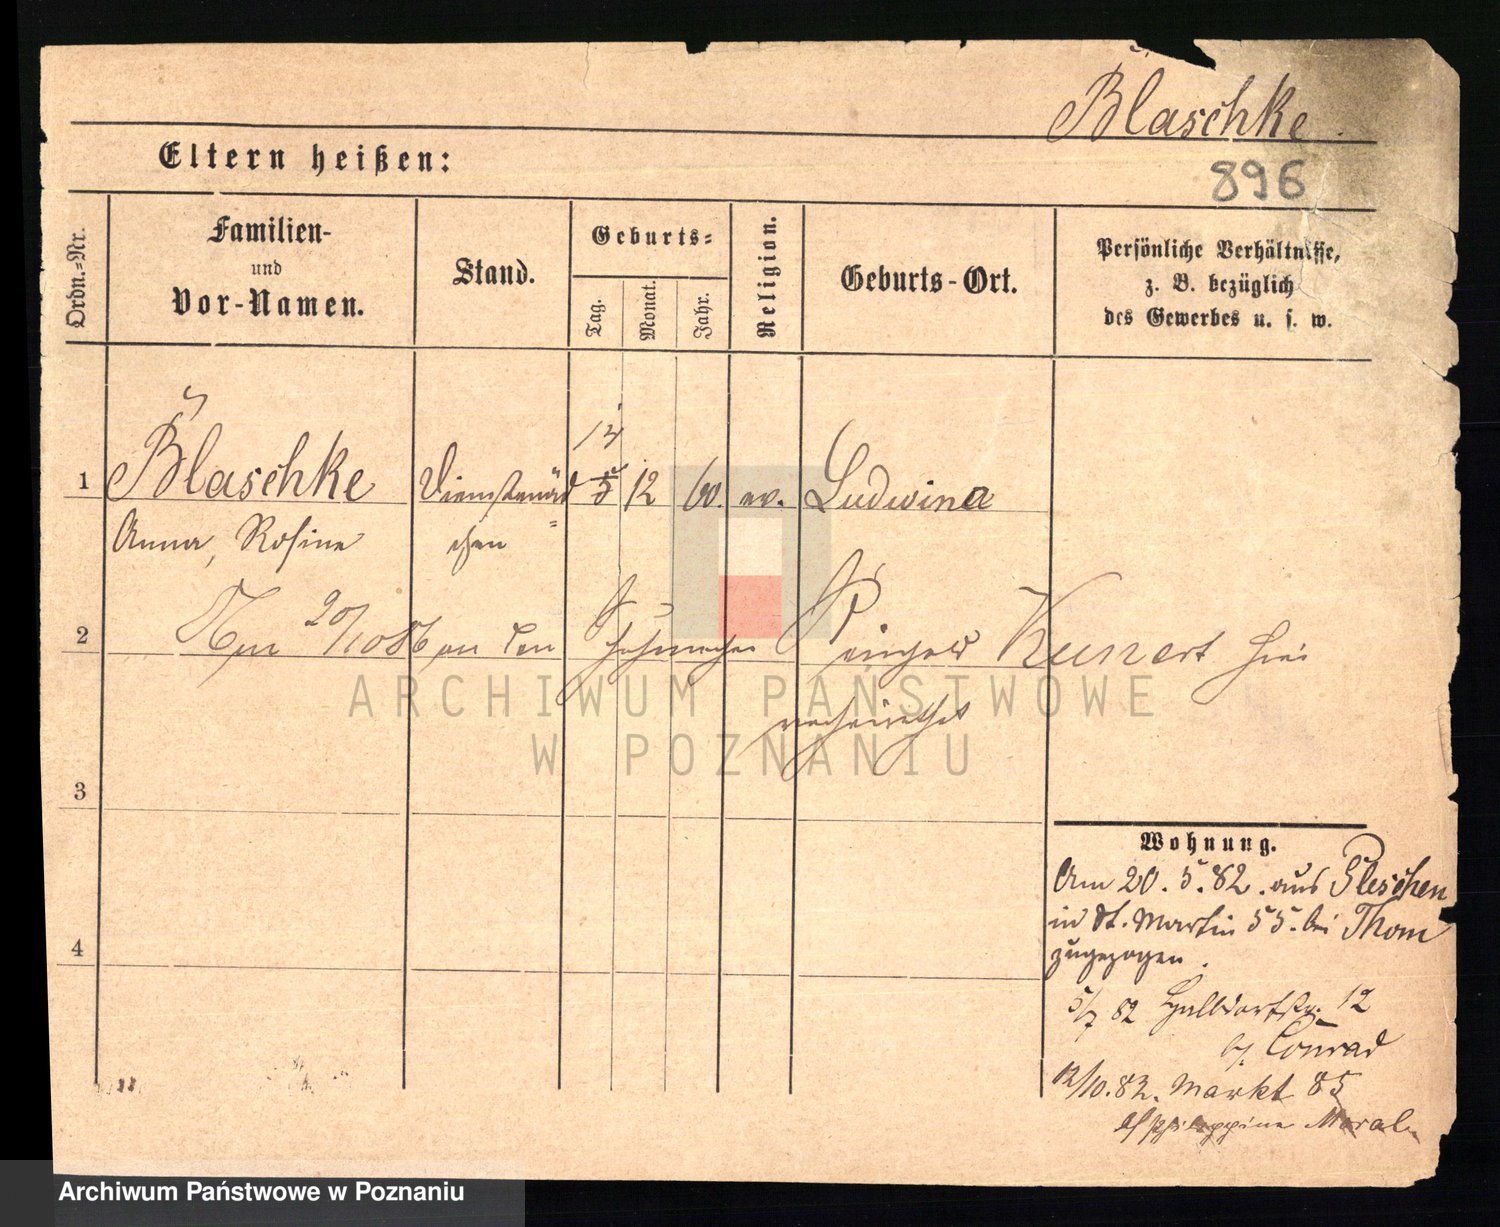 Blaschke.
896
Eltern heißen:
Ordn.=Nr.
Familien-
und
Vor-Namen.
Stand.
Geburts=
Tag.
Monat.
Jahr.
Religion.
Geburts-Ort.
Persönliche Verhältnisse,
z. B. bezüglich
des Gewerbes u. s. w.
14
1 Blaschke Dienstmäd 5 12 60. ev. Ludwina
Anna, Rosine chen
2 Am 20/10 86 an den Schuhmacher Kunert hier
verheirathet
3
4
Wohnung.
Am 20.5.82. aus Pleschen
in St. Martin 55. bei Thom
zugezogen.
5/7 82 Halbdorfstr. 12
by Conrad
12/10.82. Markt 85
Philippine
ARCHIWUM PAŃSTWOWE
W POZNANIU
Archiwum Państwowe w Poznaniu